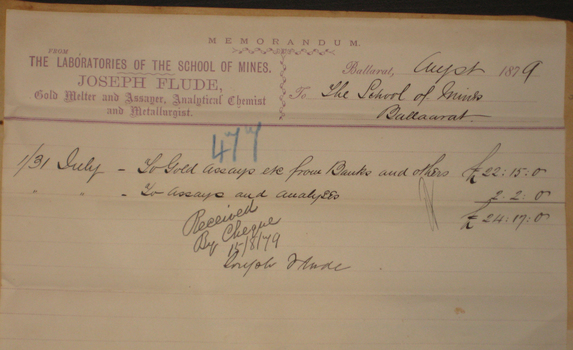 MEMORANDUM.
FROM
THE LABORATORIES OF THE SCHOOL OF MINES.
JOSEPH FLUDE,
Gold Melter and Assayer, Analytical Chemist
and Metallurgist.
Ballarat, Augst 1879
To The School of Mines
Ballaarat
477
1/31 July - To Gold Assays etc from Banks and others £22:15:0
" " - To Assays and Analyses 2:2:0
£24:17:0
Received
By Cheque
15/8/79
Joseph Flude